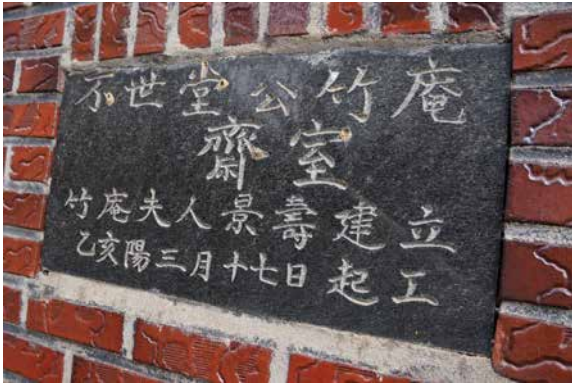 不世堂公竹庵
齋室
竹庵夫人景壽建立
乙亥陽三月十七日起工